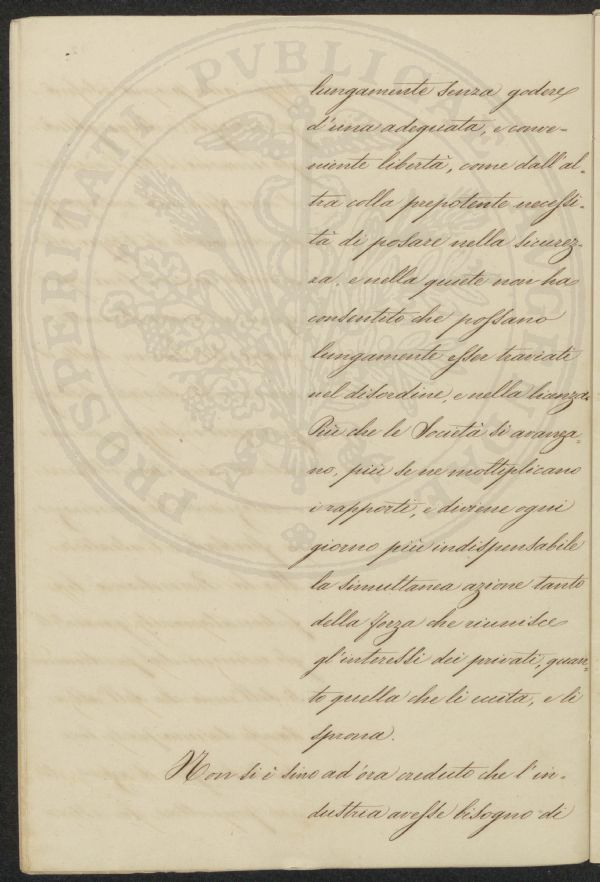 lungamente senza godere
d'una adeguata, e conve-
niente libertà, come dall'al-
tra colla prepotente necessi-
tà di posare nella sicurez-
za, e nella quiete non ha
consentito che possano
lungamente esser traviati
nel disordine, e nella licenza.
Più che le Società si avanza-
no, più se ne moltiplicano
i rapporti, e diviene ogni
giorno più indispensabile
la simultanea azione tanto
della forza che riunisce
gl'interessi dei privati, quan-
to quella che li eccita, e li
sprona.
Non si è sino ad'ora creduto che l'in-
dustria avesse bisogno di
PROSPERITATI PVBLICAE